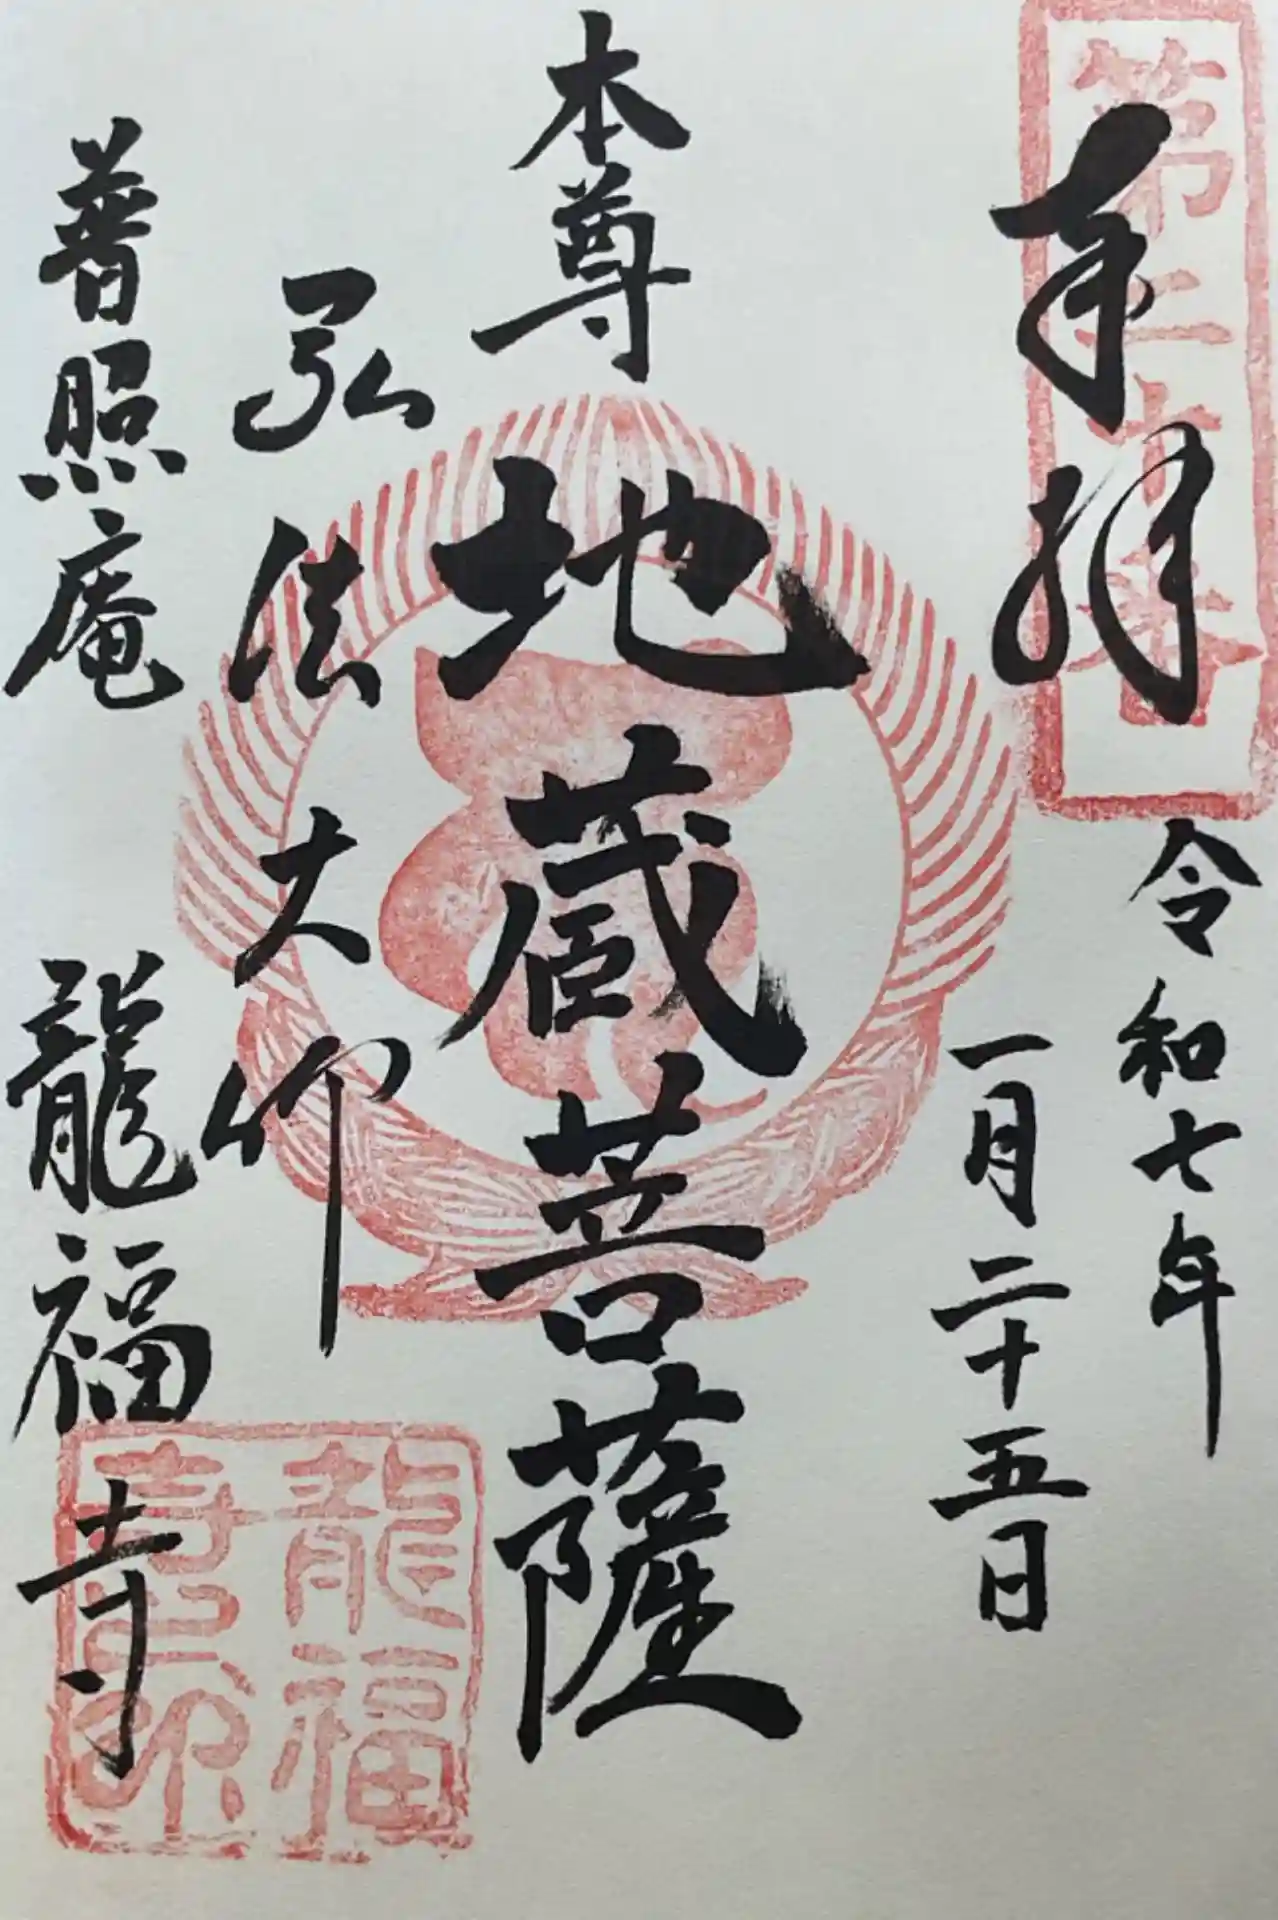 奉拝
令和七年
一月二十五日
本尊
地蔵菩薩
弘法大師
普照庵 龍福寺
龍福
寺之印